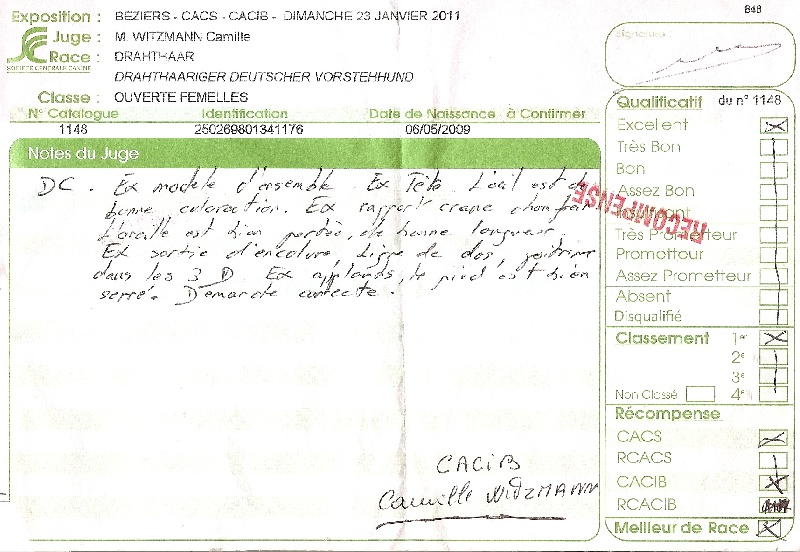 848
Exposition : BEZIERS - CACS - CACIB - DIMANCHE 23 JANVIER 2011
Juge : M. WITZMANN Camille
Race : DRAHTHAAR
SOCIETE CENTRALE CANINE
DRAHTHAARIGER DEUTSCHER VORSTEHHUND
Classe : OUVERTE FEMELLES
N° Catalogue Identification Date de Naissance à Confirmer
1148 250269801341176 06/05/2009
Notes du Juge
DC. Ex modele d'ensemble. Ex Tête. L'oeil est de
bonne coloration. Ex rapport crane chanfrein
L'oreille est bien portée, de bonne longueur.
Ex sortie d'encolure, ligne de dos, poitrine
dans les 3 D. Ex applombs, le pied est bien
serré. Demarche correcte.
CACIB
Camille WITZMANN
RECOMPENSE
Signature :
Qualificatif du n° 1148
Excellent
Très Bon
Bon
Assez Bon
Insuffisant
Très Prometteur
Prometteur
Assez Prometteur
Absent
Disqualifié
Classement 1er
2e
3e
Non Classé 4e
Récompense
CACS
RCACS
CACIB
RCACIB
Meilleur de Race